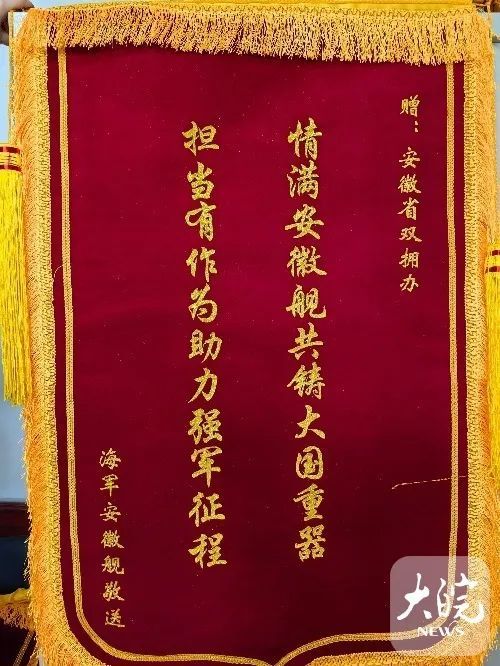 赠：安徽省双拥办
情满安徽舰共铸大国重器
担当有作为助力强军征程
海军安徽舰敬送
大皖
NEWS